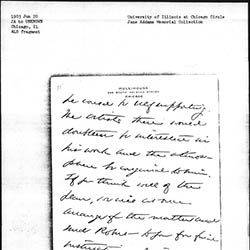 1903 Jun 20
JA to UNKNOWN
Chicago, Il
ALS fragment
University of Illinois at Chicago Circle
Jane Addams Memorial Collection
HULL-HOUSE
CHICAGO
be self supporting.
The artists there would
doubtless be interested in
his work and the atmos-
phere be congenial to him.
If you think well of the
plan, we
arrange the matter and
send for